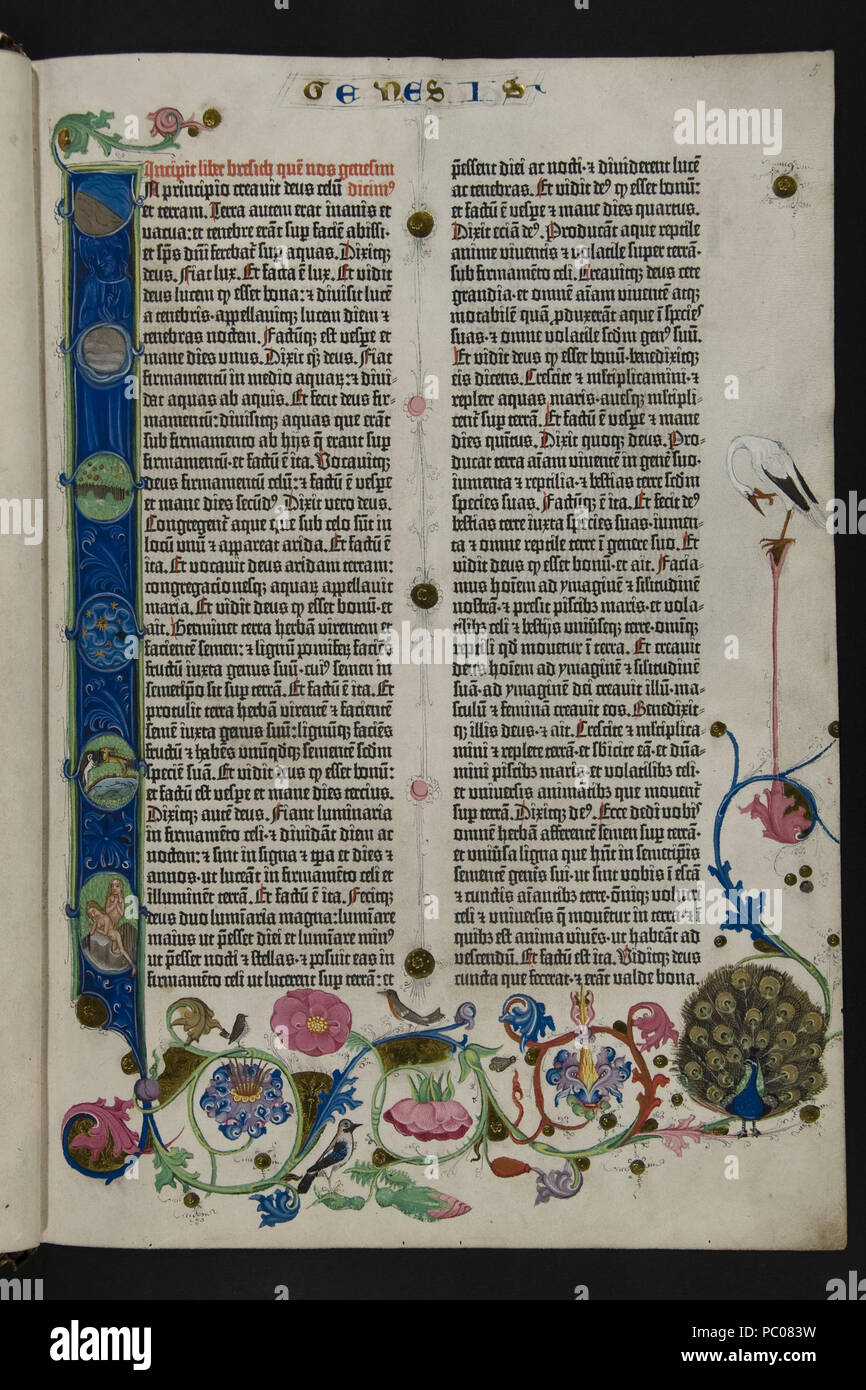 GENESIS
5
Incipit liber bresich quē nos genesim
N principio creavit deus celū dicimꝰ
et terram. Terra autem erat inanis et
vacua: et tenebre erāt suꝑ faciē abissi.
et spūs dn̄i ferebat᷑ suꝑ aquas. Dixitqꝫ
deus. Fiat lux. Et facta ē lux. Et vidit
deus lucem ꝙ esset bona: ⁊ divisit lucē
a tenebris. appellavitqꝫ lucem diem ⁊
tenebras noctem. Factūqꝫ est vespe et
mane dies vnus. Dixit qꝫ deus. Fiat
firmamentū in medio aquaꝝ: ⁊ divi-
dat aquas ab aquis. Et fecit deus fir-
mamentū: divisitqꝫ aquas que erāt
sub firmamento ab hijs q̄ erant suꝑ
firmamentū. et factū ē ita. Vocavitqꝫ
deus firmamentū celū: ⁊ factū ē vespe
et mane dies secūdꝰ. Dixit vero deus.
Congregent᷑ aque que sub celo sūt in
locū vnū ⁊ appareat arida. Et factū ē
ita. Et vocavit deus aridam terram:
congregacionesqꝫ aquaꝝ appellavit
maria. Et vidit deus ꝙ esset bonū. et
ait. Germinet terra herbā virentem et
facientē semen: ⁊ lignū pomifeꝝ faciēs
fructū iuxta genus suū. cuiꝰ semen in
semetipō sit suꝑ terrā. Et factū ē ita. Et
protulit terra herbā virentē ⁊ facientē
semē iuxta genus suū: lignūqꝫ faciēs
fructū ⁊ habēs vnūqdqꝫ sementē scdm̄
speciē suā. Et vidit deus ꝙ esset bonū:
et factū est vespe et mane dies tercius.
Dixitqꝫ autē deus. Fiant luminaria
in firmamēto celi. ⁊ dividāt diem ac
noctem: ⁊ sint in signa ⁊ tp̄a et dies ⁊
annos. ut luceāt in firmamēto celi et
illuminēt terrā. Et factū ē ita. Fecitqꝫ
deus duo luminaria magna: lumīare
maius ut p̄esset diei et lumīare minꝰ
ut p̄esset nocti ⁊ stellas. ⁊ posuit eas in
firmamēto celi ut lucerent suꝑ terrā: et
p̄essent diei ac nocti. ⁊ dividerent lucē
ac tenebras. Et vidit deꝰ ꝙ esset bonū:
et factū ē vespe ⁊ mane dies quartus.
Dixit eciā deꝰ. Producāt aque reptile
anime viventis ⁊ volatile super terrā.
sub firmamēto celi. Creavitqꝫ deus cete
grandia. et omnē aīam viventē atqꝫ
motabilē quā ꝓduxerāt aque ī speciē
suas. ⁊ omne volatile scdm̄ genꝰ suū.
Et vidit deus ꝙ esset bonū. benedixitqꝫ
eis dicens. Crescite ⁊ mltiplicamini. ⁊
replete aquas maris. avesqꝫ mltipli-
cent᷑ suꝑ terrā. Et factū ē vespe ⁊ mane
dies quītus. Dixit quoqꝫ deus. Pro-
ducat terra aīam viventē in genere suo.
iumenta ⁊ reptilia. ⁊ bestias terre scdm̄
species suas. Factūqꝫ ē ita. Et fecit deꝰ
bestias terre iuxta species suas. iumen-
ta ⁊ omne reptile terre ī genere suo. Et
vidit deus ꝙ esset bonū. et ait. Facia-
mus hoīem ad ymaginē ⁊ silitudinē
nostrā. ⁊ presit piscibꝫ maris. et vola-
tilibꝫ celi ⁊ bestijs vniūseqꝫ terre. omīqꝫ
reptili qd movetur ī terra. Et creavit
deus hoīem ad ymaginē ⁊ silitudinē
suā. ad ymaginē dei creavit illū. ma-
sculū ⁊ feminā creavit eos. Benedixit-
qꝫ illis deus. ⁊ ait. Crescite ⁊ mltiplica-
mini ⁊ replete terrā. et sbicite eā. et dn̄a-
mini piscibꝫ maris. et volatilibꝫ celi.
et vniversis animātibꝫ que movent᷑
suꝑ terrā. Dixitqꝫ deꝰ. Ecce dedi vobis
omnē herbā afferentē semen suꝑ terrā.
et vniūsa ligna que hn̄t in semetipīs
sementē genis sui. ut sint vobis ī escā
⁊ cunctis aīantibꝫ terre. oīiqꝫ volucri
celi ⁊ vniversis q̄ movētur in terra. ⁊ ī
quibꝫ est anima vivēs. ut habeāt ad
vescendū. Et factū est ita. Viditqꝫ deus
cuncta que fecerat. ⁊ erāt valde bona.
alamy
Image ID: PC083W
www.alamy.com